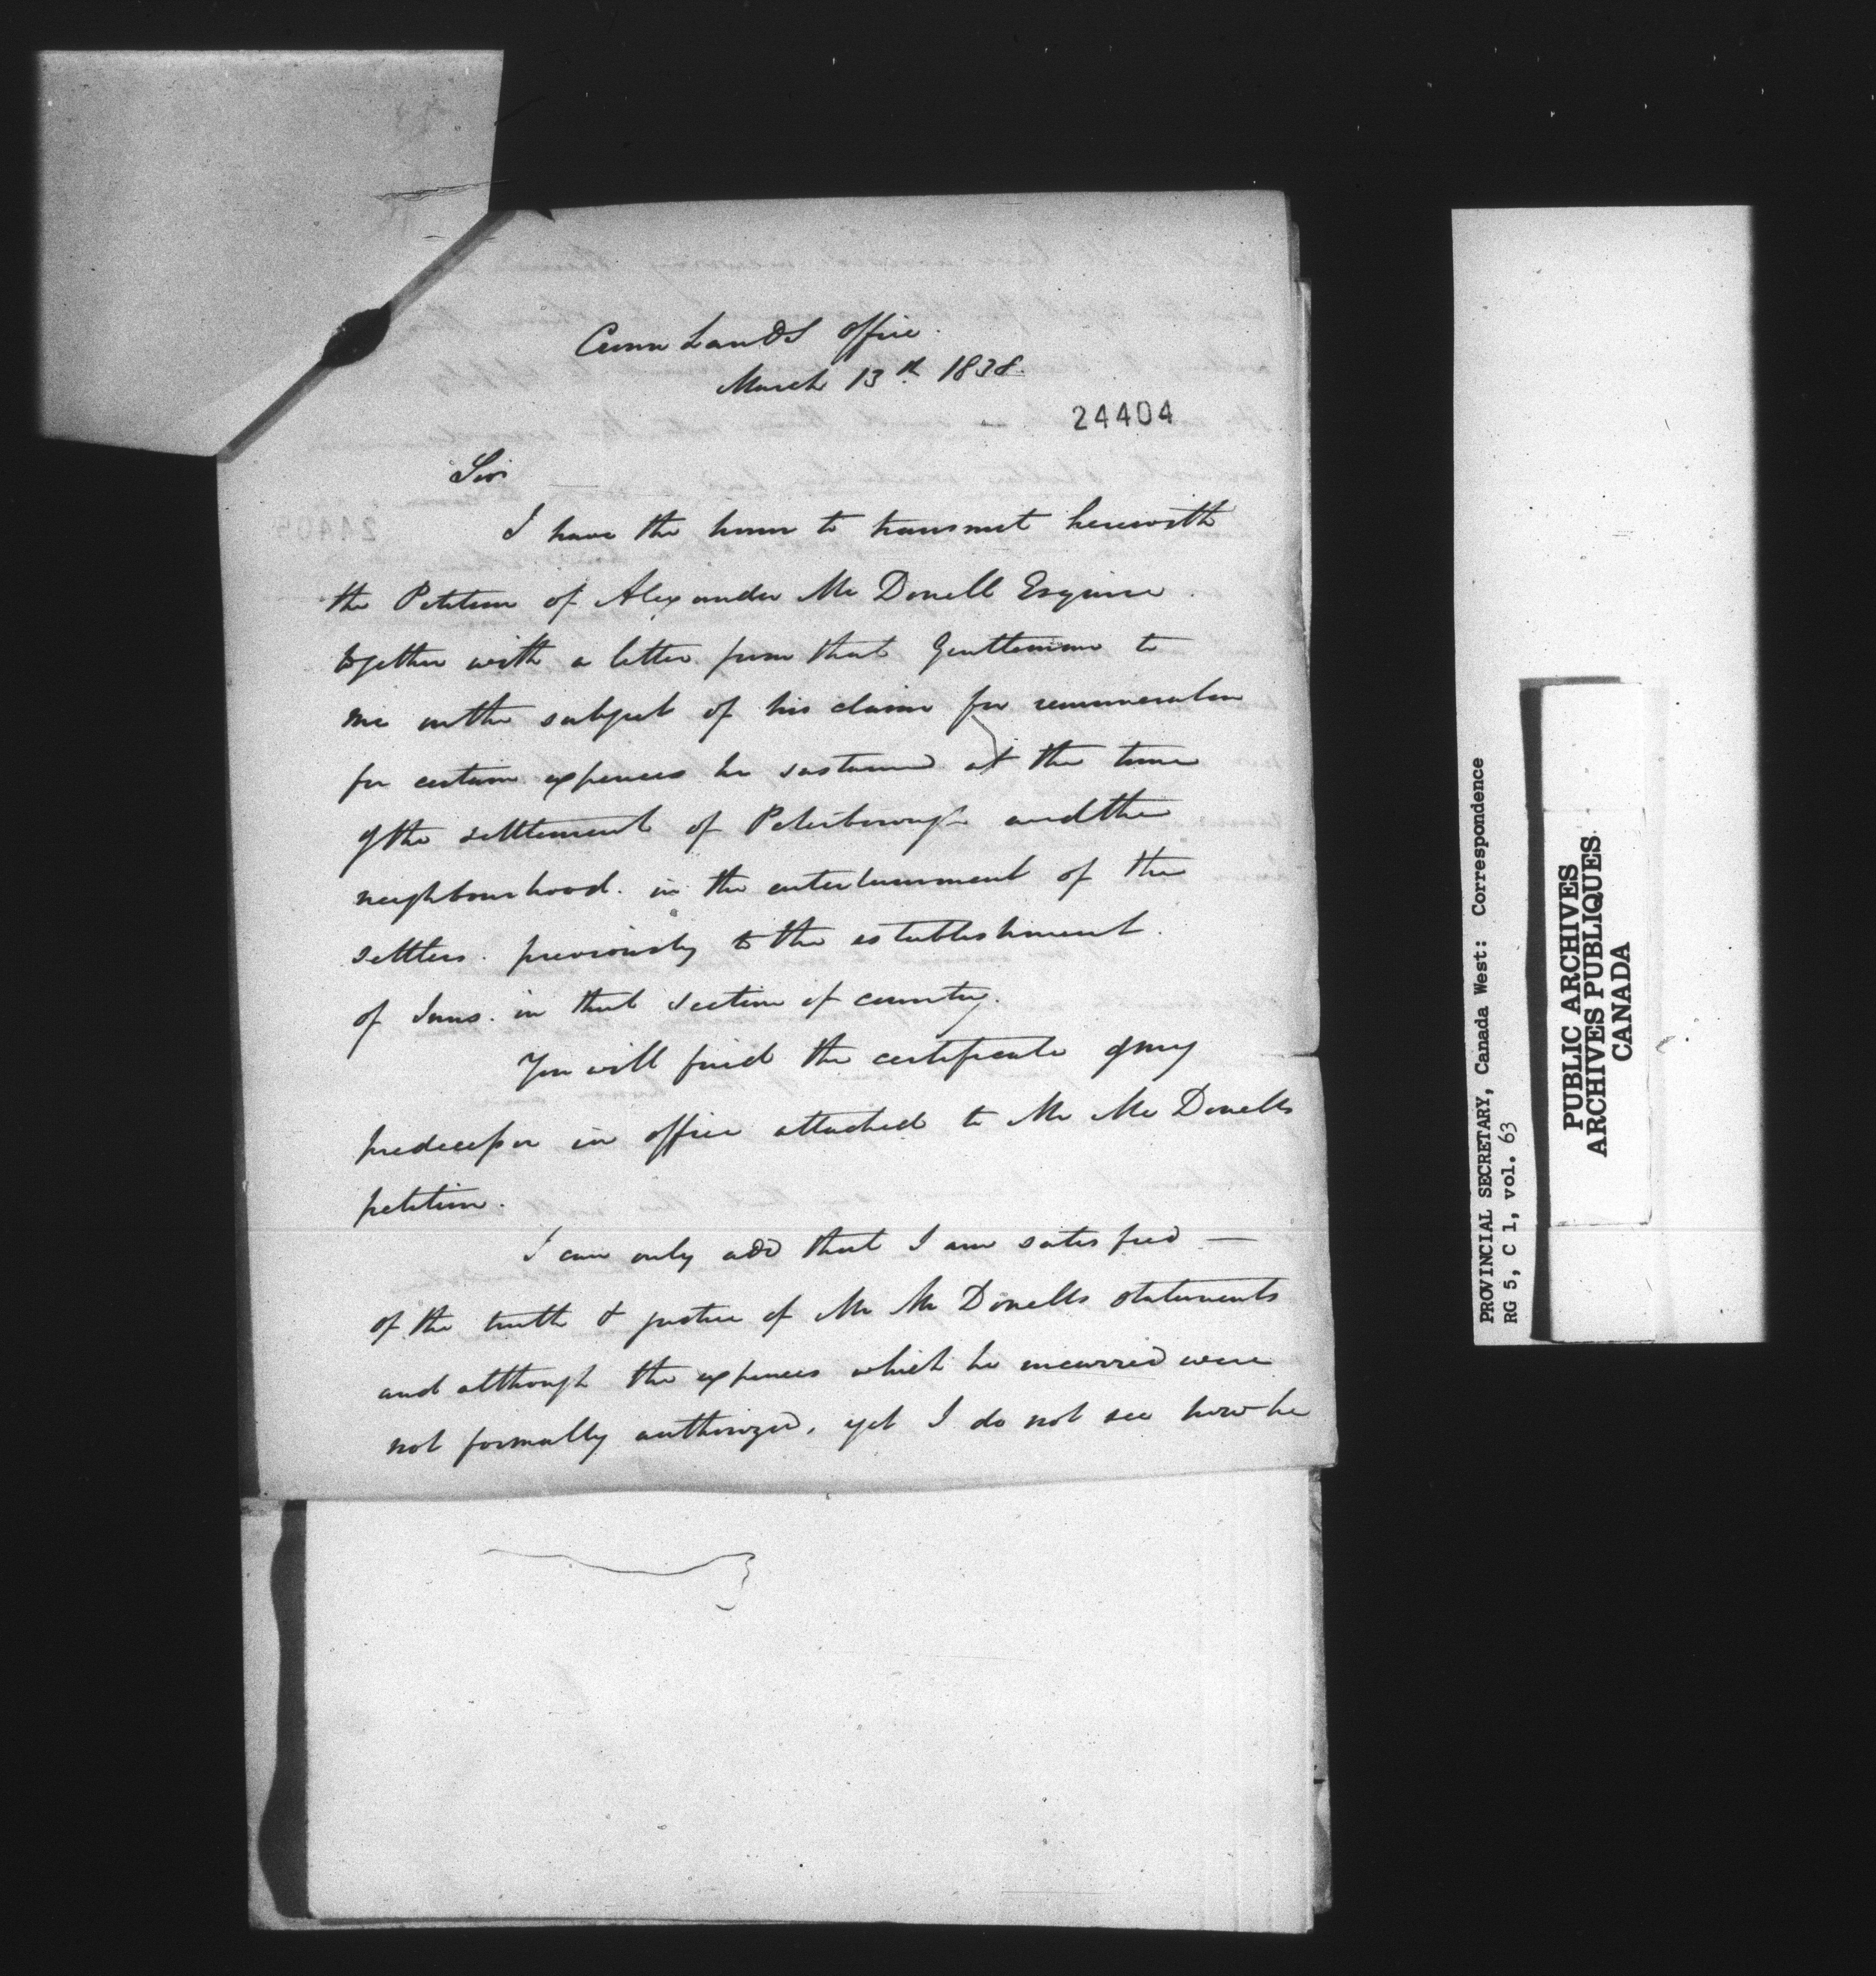 Crown Lands Office.
March 13th 1838.
24404
Sir
I have the honor to transmit herewith
the Petition of Alexander Mc Donell Esquire
together with a letter from that Gentleman to
me on the subject of his claim for remuneration
for certain expences he sustained at the time
of the settlement of Peterborough and the
neighbourhood in the entertainment of the
settlers previously to the establishment
of Inns in that section of country.
You will find the certificate of my
predecessor in office attached to Mr Mc Donells
petition.
I can only add that I am satisfied —
of the truth & justice of Mr Mc Donells statements
and although the expences which he incurred were
not formally authorized, yet I do not see how he
PROVINCIAL SECRETARY, Canada West: Correspondence
RG 5, C 1, vol. 63
PUBLIC ARCHIVES
ARCHIVES PUBLIQUES
CANADA